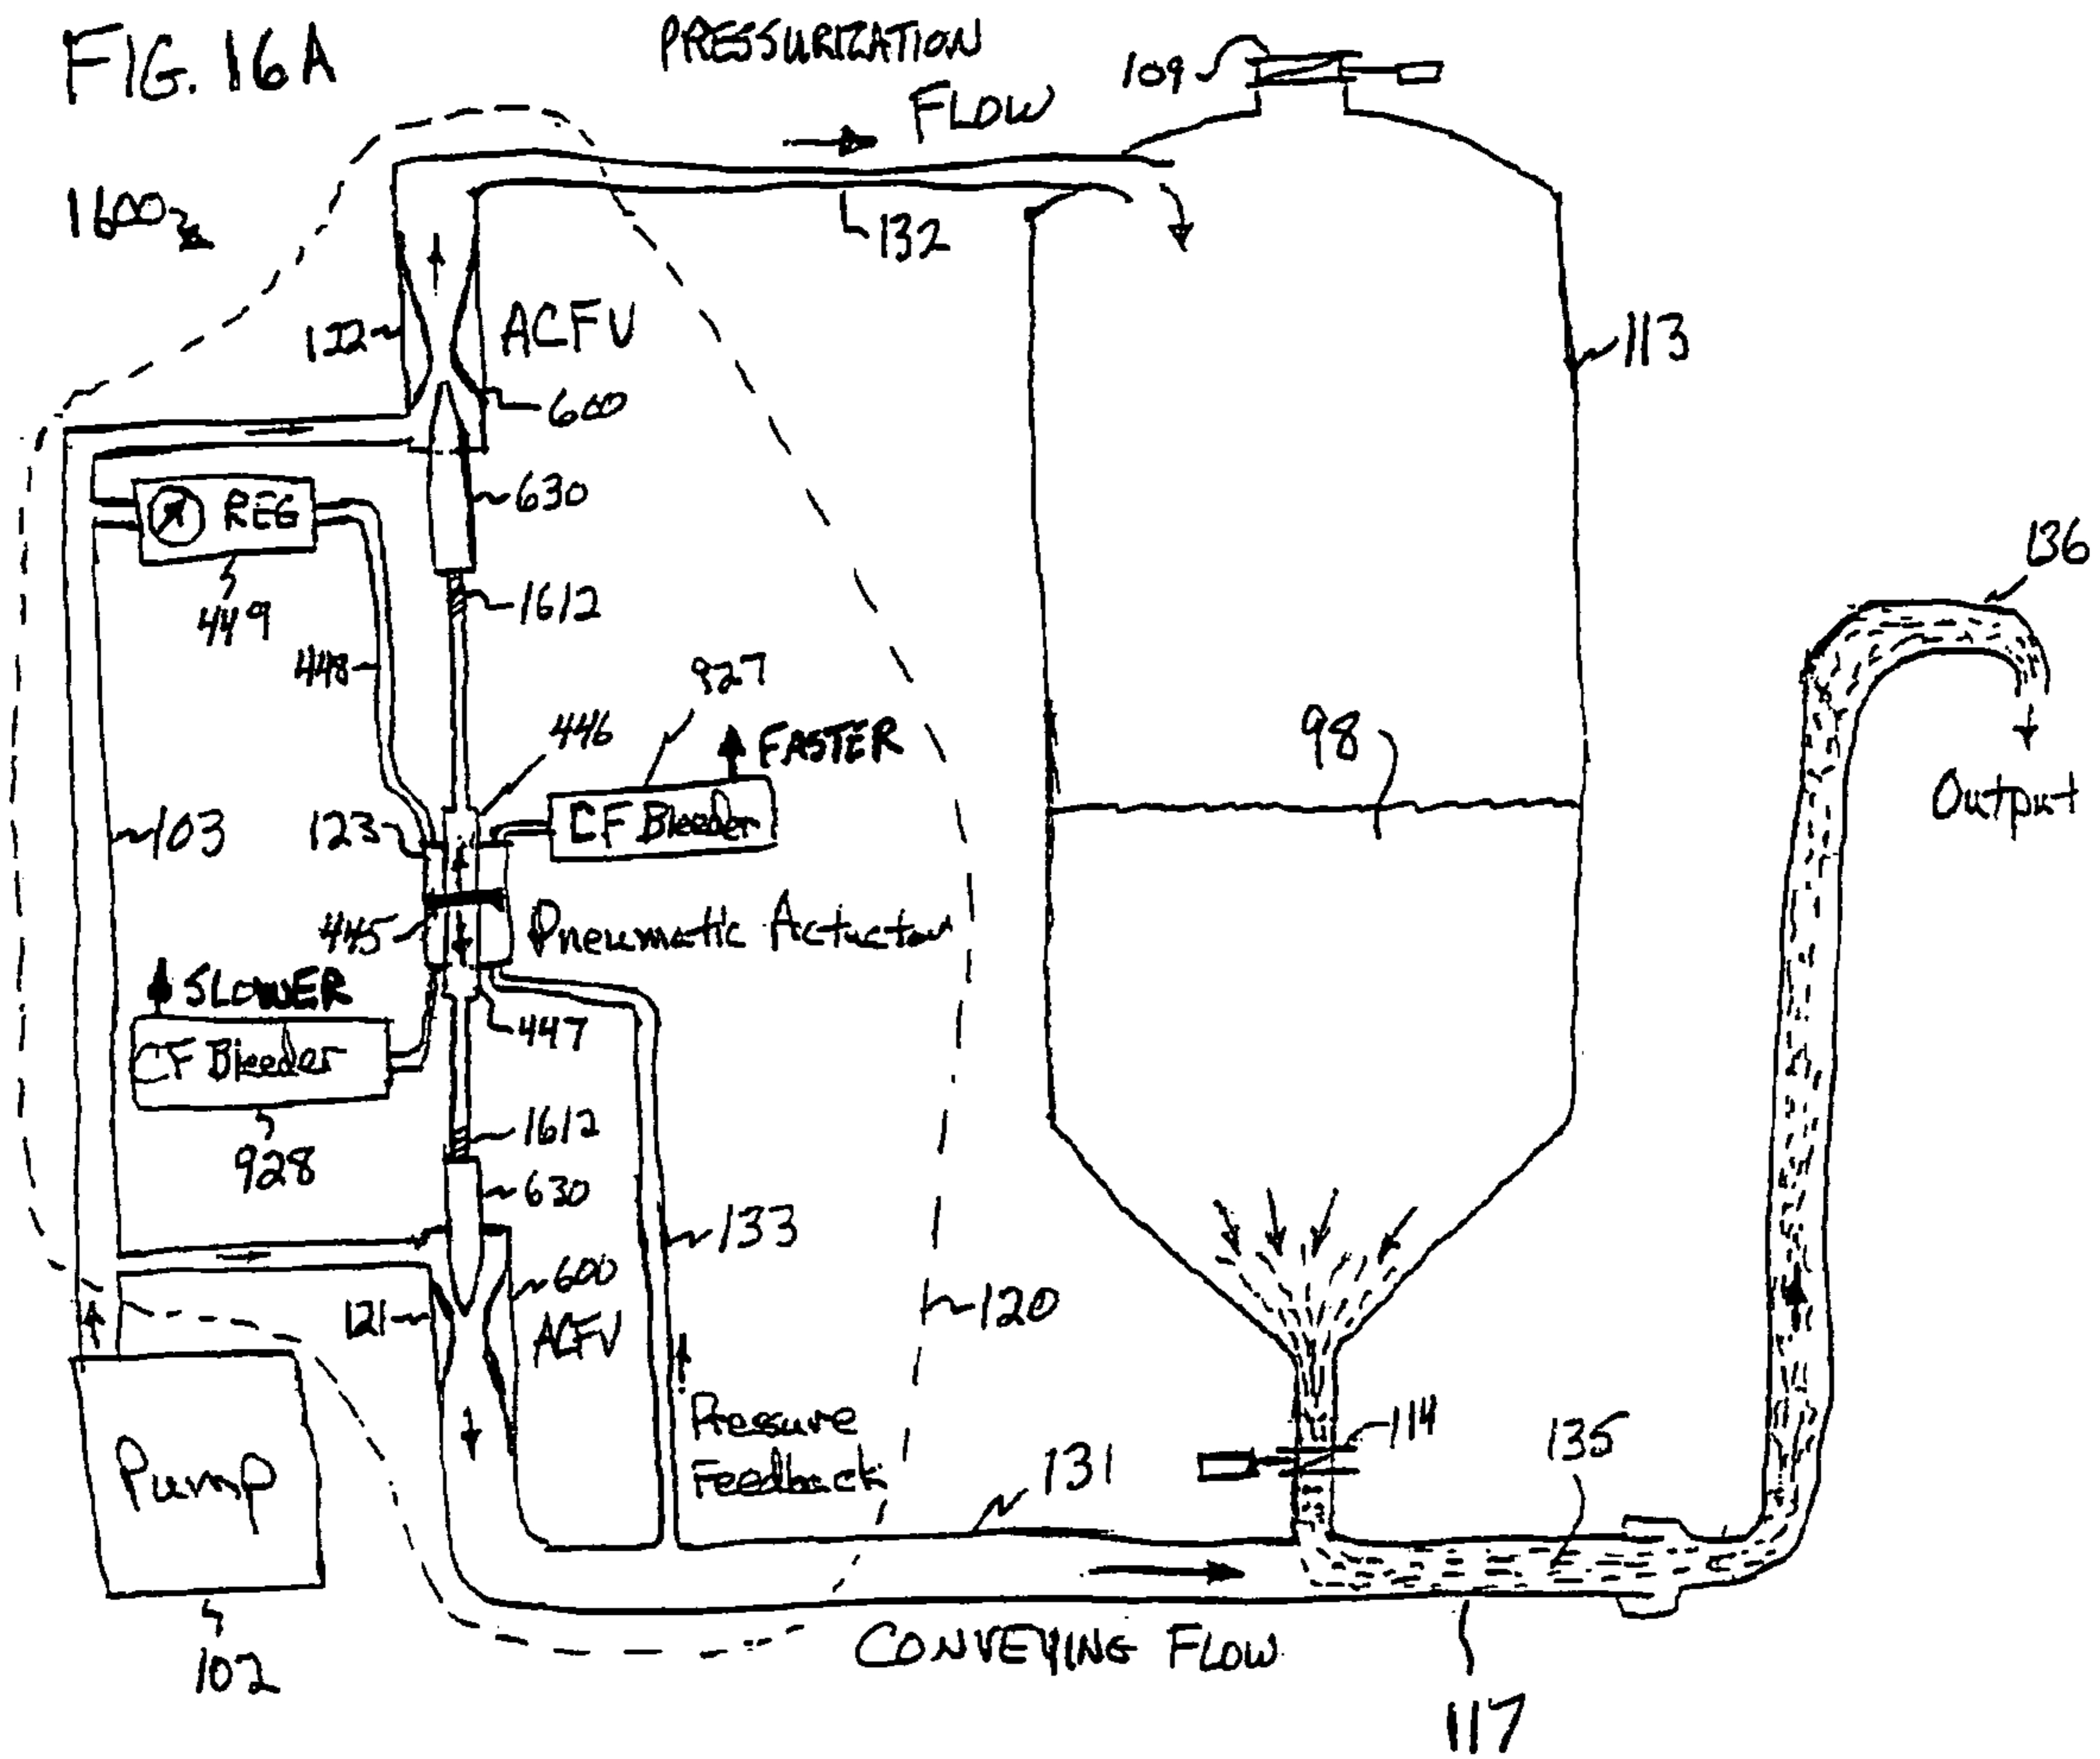 FIG. 16A
PRESSURIZATION
FLOW
109
1600
132
122
ACFV
600
113
630
REG
449
1612
136
448
927
446
FASTER
98
Output
103
123
CF Bleeder
445
Pneumatic Actuator
SLOWER
447
CF Bleeder
928
1612
630
133
600
120
121
ACFV
Pressure
Feedback
114
135
131
Pump
102
CONVEYING FLOW
117